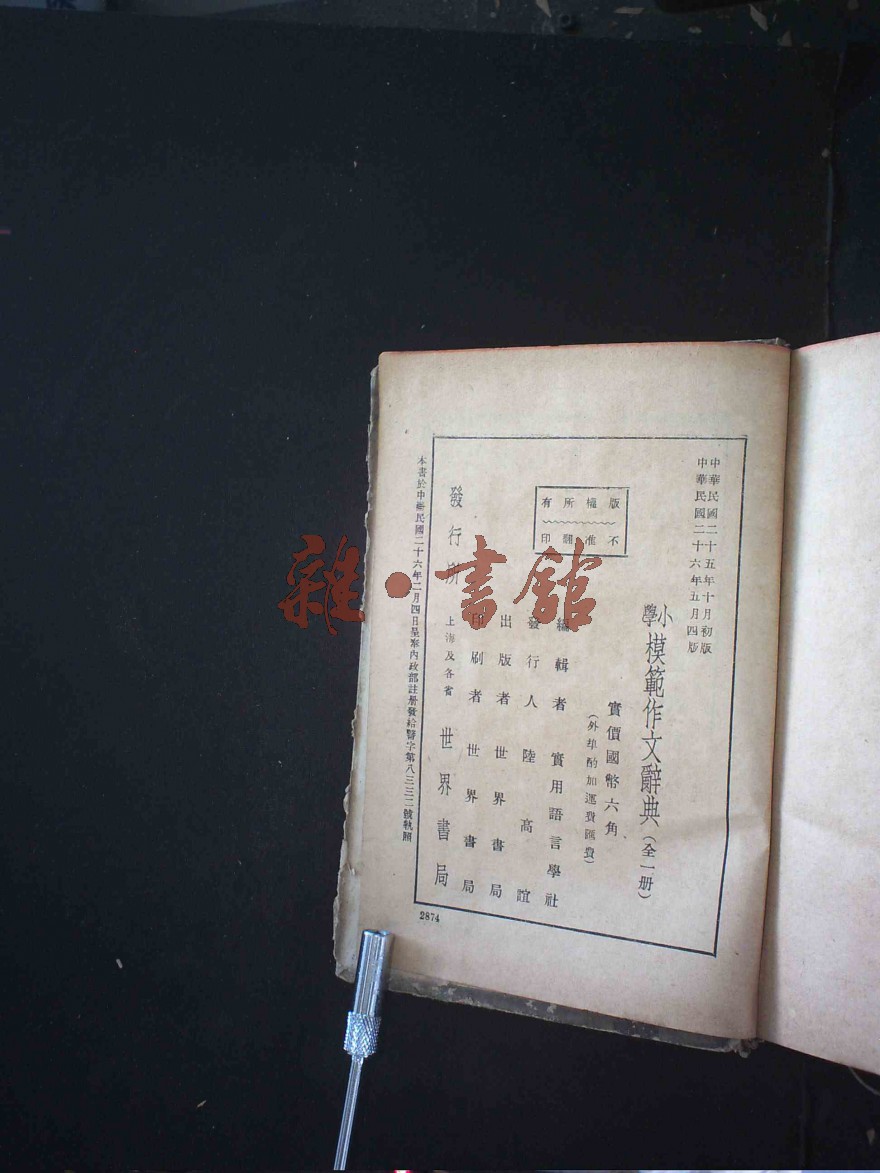 中華民國二十五年十月初版
中華民國二十六年五月四版
小學模範作文辭典(全一册)
實價國幣六角
(外埠酌加運費匯費)
版權所有
不准翻印
編輯者 實用語言學社
發行人 陸高誼
出版者 世界書局
印刷者 世界書局
發行所 上海及各省 世界書局
本書於中華民國二十六年二月四日呈奉內政部註册發給警字第八三三二號執照
2874
雜·書館